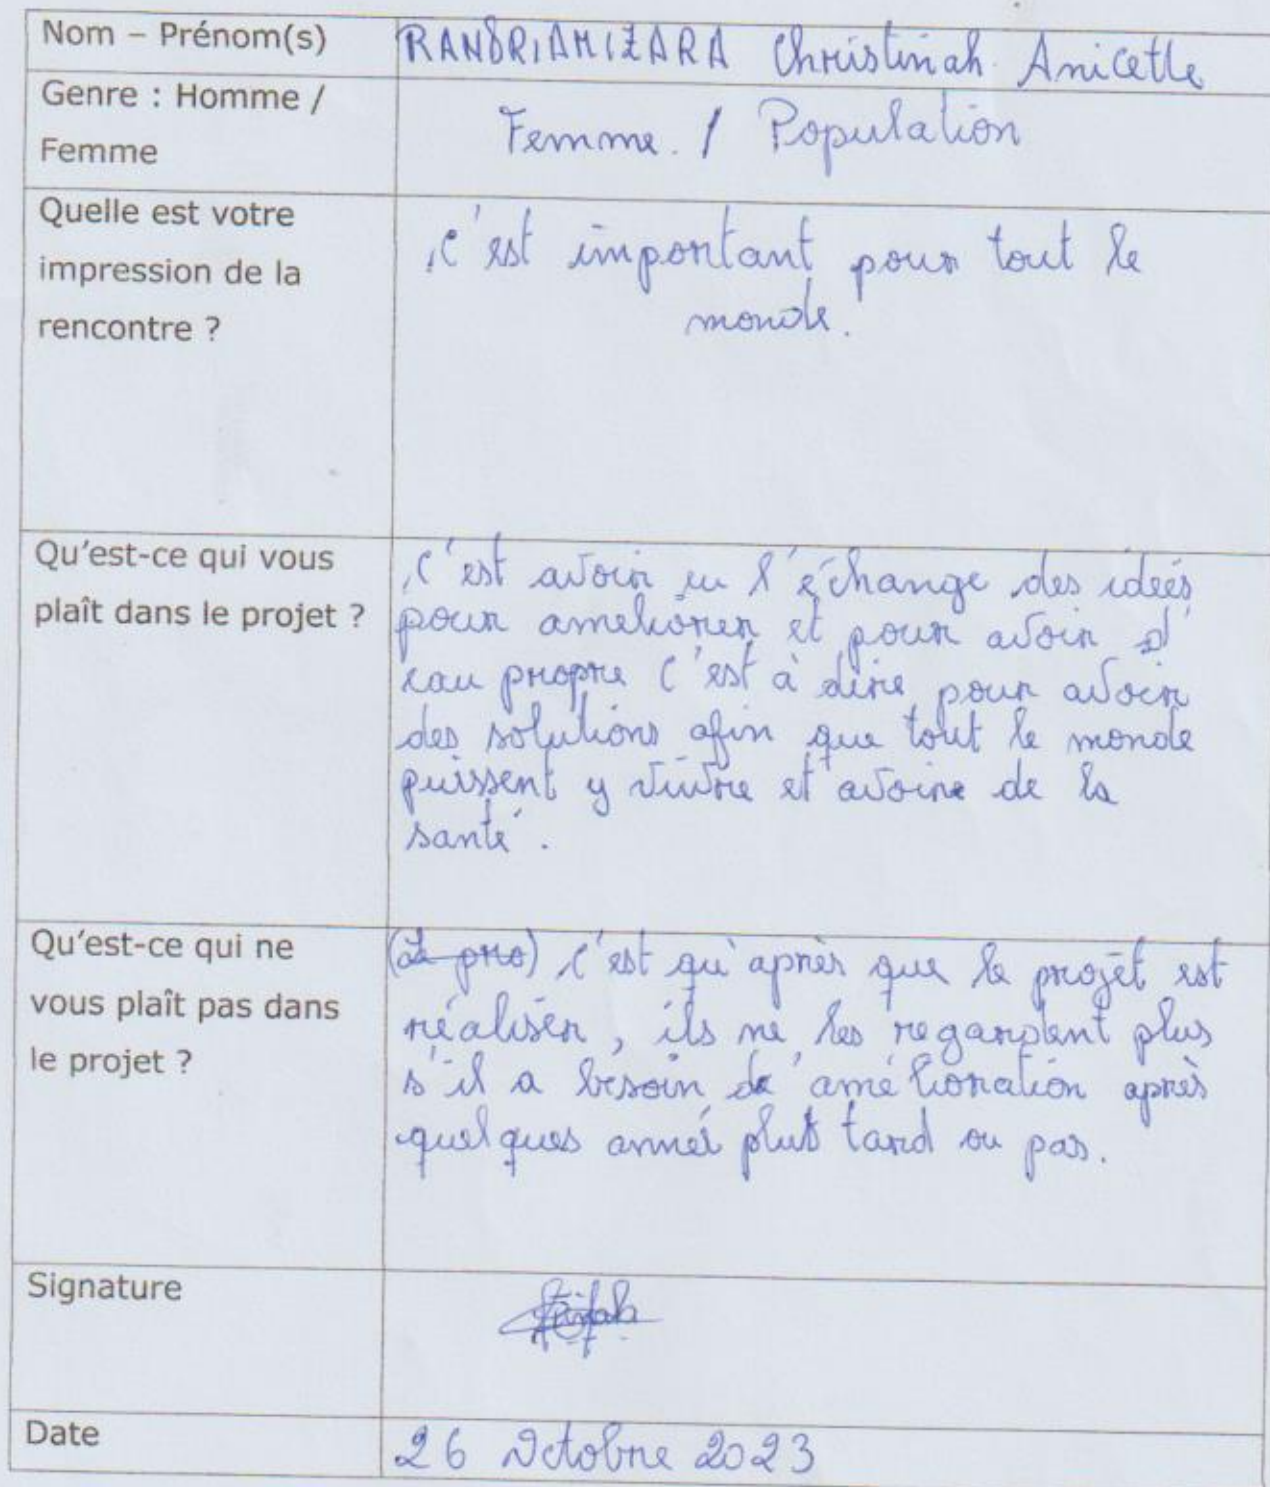 Nom – Prénom(s)
RANDRIAMIZARA Christinah Anicette
Genre : Homme /
Femme
Femme. / Population
Quelle est votre
impression de la
rencontre ?
C'est important pour tout le
monde.
Qu'est-ce qui vous
plaît dans le projet ?
C'est avoir eu l'échange des ideés
pour ameliorer et pour avoir d'
eau propre c'est à dire pour avoir
des solutions afin que tout le monde
puissent y vivre et avoire de la
santé.
Qu'est-ce qui ne
vous plaît pas dans
le projet ?
(Le pro) c'est qu'après que le projet est
réaliser, ils ne les regardent plus
s'il a besoin de amélioration après
quelques anneé plus tard ou pas.
Signature
Date
26 Octobre 2023